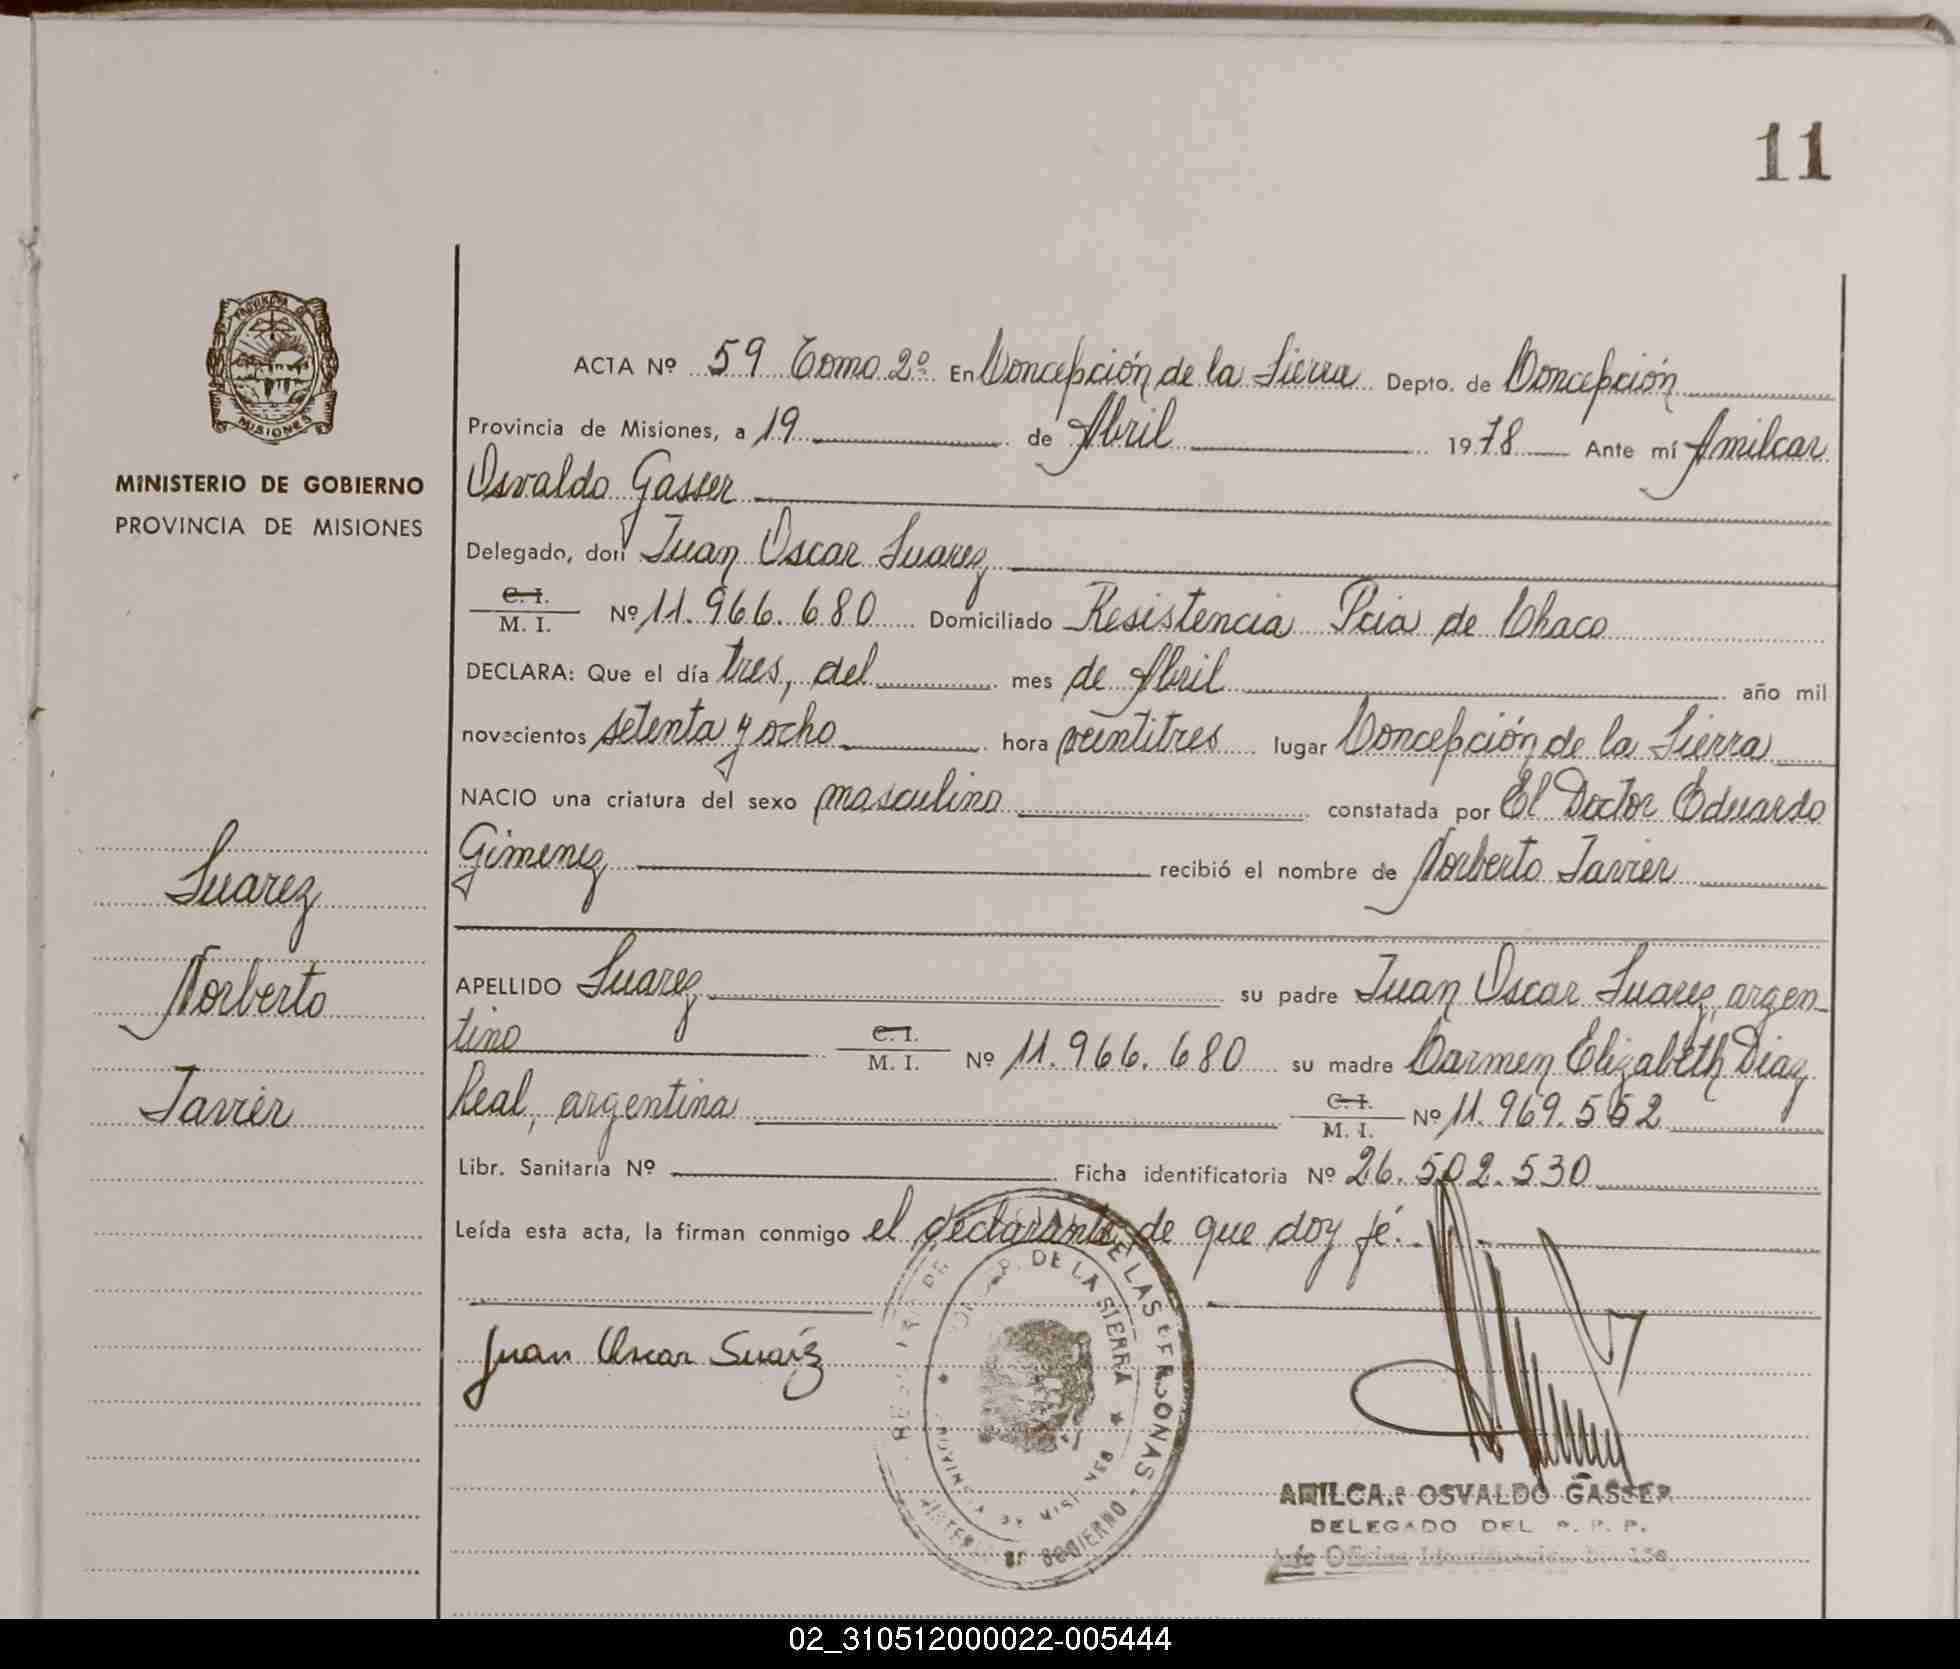 11
PROVINCIA DE
MISIONES
MINISTERIO DE GOBIERNO
PROVINCIA DE MISIONES
Suarez
Norberto
Javier
ACTA Nº 59 Tomo 2º En Concepción de la Sierra Depto. de Concepción
Provincia de Misiones, a 19 de Abril 1978 Ante mí Amilcar
Osvaldo Gasser
Delegado, don Juan Oscar Suarez
C. I.
M. I. Nº 11.966.680 Domiciliado Resistencia Pcia de Chaco
DECLARA: Que el día tres, del mes de Abril año mil
novecientos setenta y ocho hora veintitres lugar Concepción de la Sierra
NACIO una criatura del sexo masculino constatada por El Doctor Eduardo
Gimenez recibió el nombre de Norberto Javier
APELLIDO Suarez su padre Juan Oscar Suarez, argen-
tino C. I. M. I. Nº 11.966.680 su madre Carmen Elizabeth Diaz
Real, argentina C. I. M. I. Nº 11.969.552
Libr. Sanitaria Nº Ficha identificatoria Nº 26.502.530
Leída esta acta, la firman conmigo el declarante de que doy fé.
Juan Oscar Suarez
DE LAS PERSONAS
DE LA SIERRA
PROVINCIA DE MISIONES
DE GOBIERNO
AMILCAR OSVALDO GASSER
DELEGADO DEL R. P. P.
Jefe Oficina
02_310512000022-005444